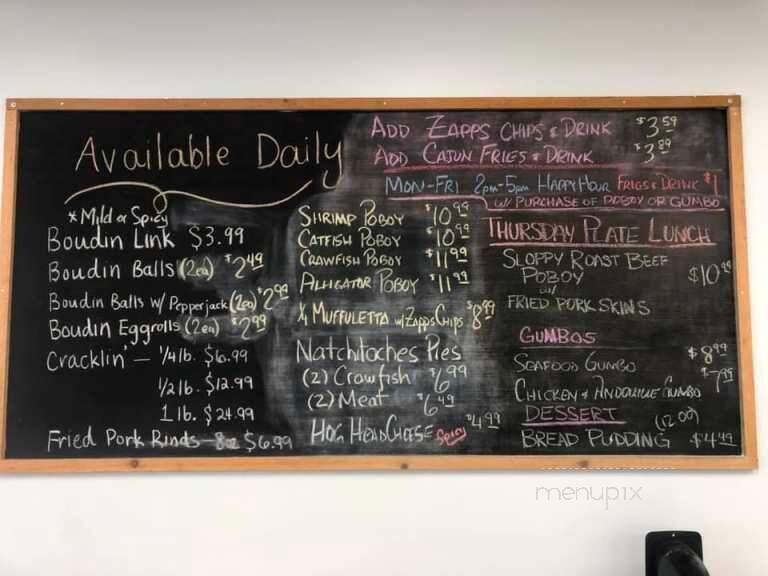 Available Daily
* Mild or Spicy
Boudin Link $3.99
Boudin Balls (2ea) $2.49
Boudin Balls w/ Pepperjack (2ea) $2.99
Boudin Eggrolls (2ea) $2.99
Cracklin' — 1/4 lb. $6.99
1/2 lb. $12.99
1 lb. $24.99
Fried Pork Rinds — 8oz $6.99
Shrimp Poboy $10.99
Catfish Poboy $10.99
Crawfish Poboy $11.99
Alligator Poboy $11.99
1/4 Muffuletta w/ Zapps Chips $8.99
Natchitoches Pies
(2) Crawfish $6.99
(2) Meat $6.49
Hog Head Cheese Spicy $4.99
Add Zapps Chips & Drink $3.59
Add Cajun Fries & Drink $3.89
Mon-Fri 2pm-5pm Happy Hour Fries & Drink $1
w/ Purchase of Poboy or Gumbo
Thursday Plate Lunch
Sloppy Roast Beef
Poboy $10
w/
Fried Pork Skins
Gumbos
Seafood Gumbo $8.99
Chicken & Andouille Gumbo $7.99
Dessert
(12 oz)
Bread Pudding $4.49
menupix